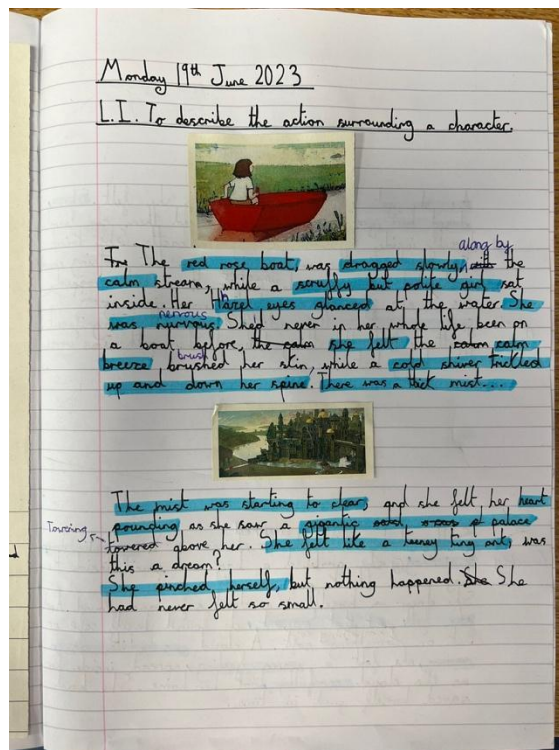 Monday 19th June 2023
L.I. To describe the action surrounding a character.
The red rose boat, was dragged slowly, along by the
calm stream, while a scruffy but polite girl sat
inside. Her Hazel eyes glanced at the water. She
was nurvous. nervous Shed never in her whole life been on
a boat before, the calm she felt the calm calm
breeze brushed brush her skin, while a cold shiver trickled
up and down her spine. There was a thick mist...
The mist was starting to clear, and she felt her heart
pounding as she saw a gigantic palace
Towring towered above her. She felt like a teeney ting ant, was
this a dream?
She pinched herself, but nothing happened. She She
had never felt so small.